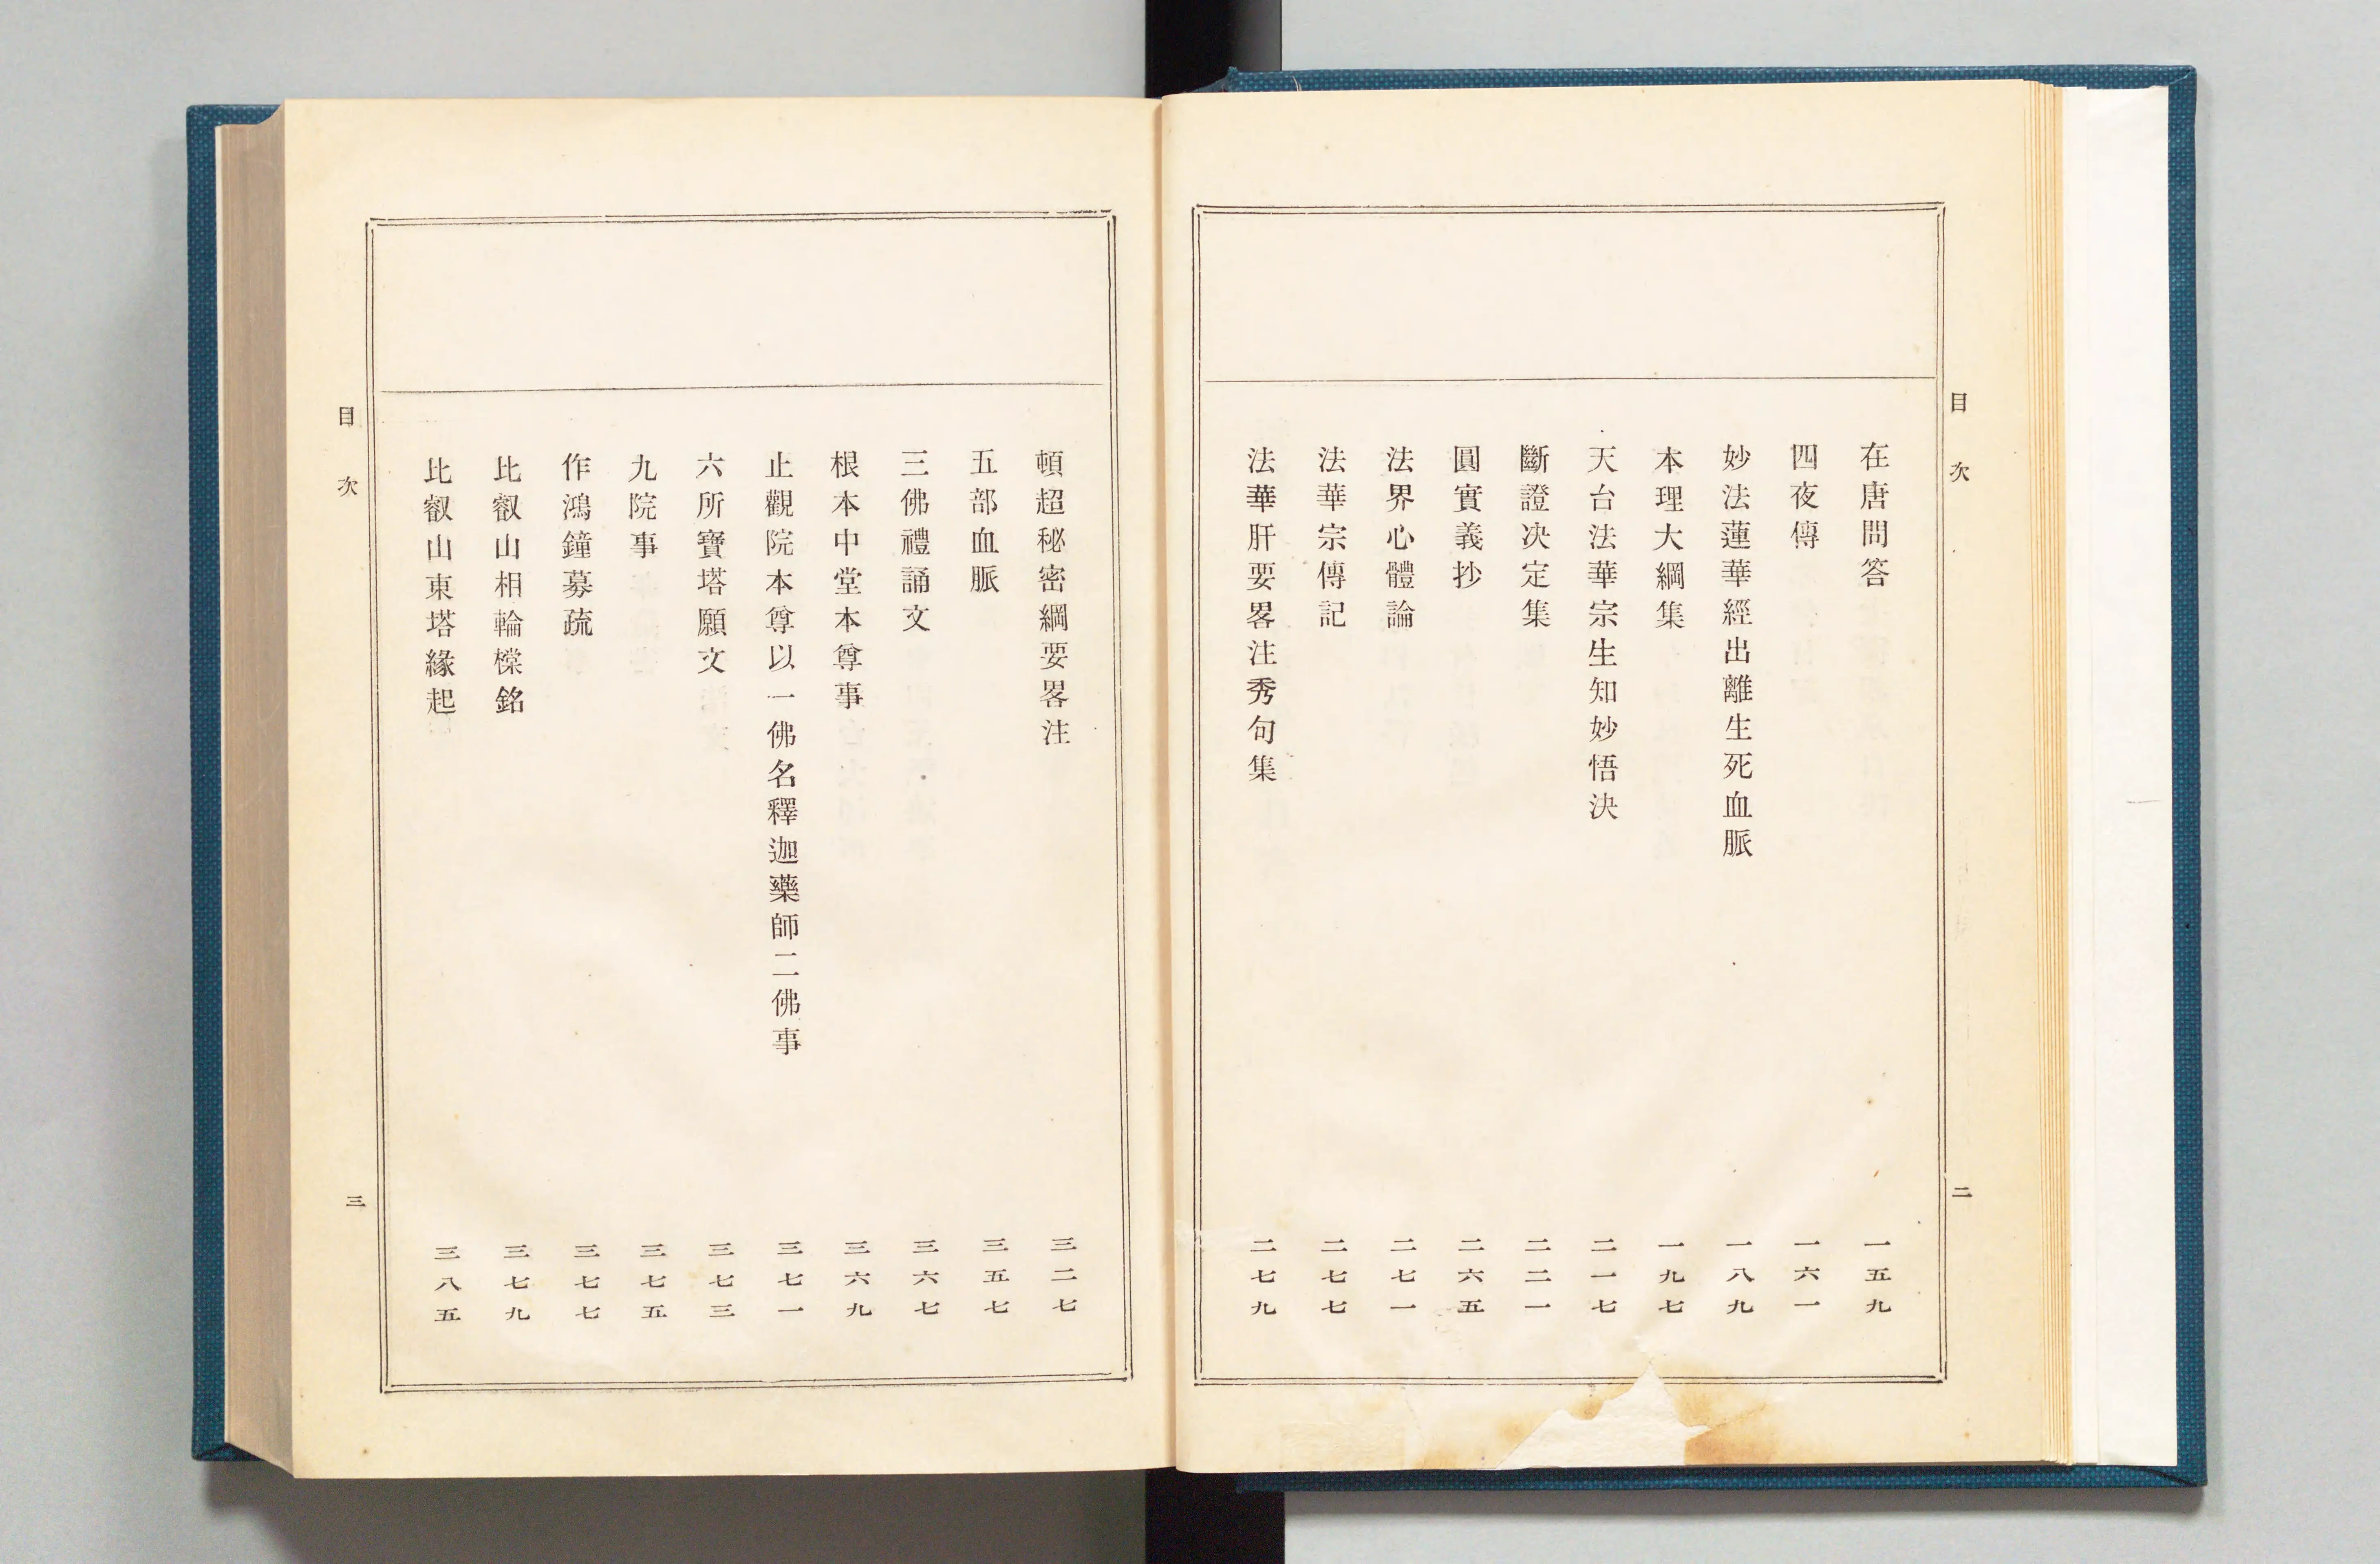 目次
二
在唐問答 一五九
四夜傳 一六一
妙法蓮華經出離生死血脈 一八九
本理大綱集 一九七
天台法華宗生知妙悟決 二一七
斷證決定集 二二一
圓實義抄 二六五
法界心體論 二七一
法華宗傳記 二七七
法華肝要畧注秀句集 二七九
頓超秘密綱要畧注 三二七
五部血脈 三五七
三佛禮誦文 三六七
根本中堂本尊事 三六九
止觀院本尊以一佛名釋迦藥師二佛事 三七一
六所寶塔願文 三七三
九院事 三七五
作鴻鐘募疏 三七七
比叡山相輪橖銘 三七九
比叡山東塔緣起 三八五
目次
三